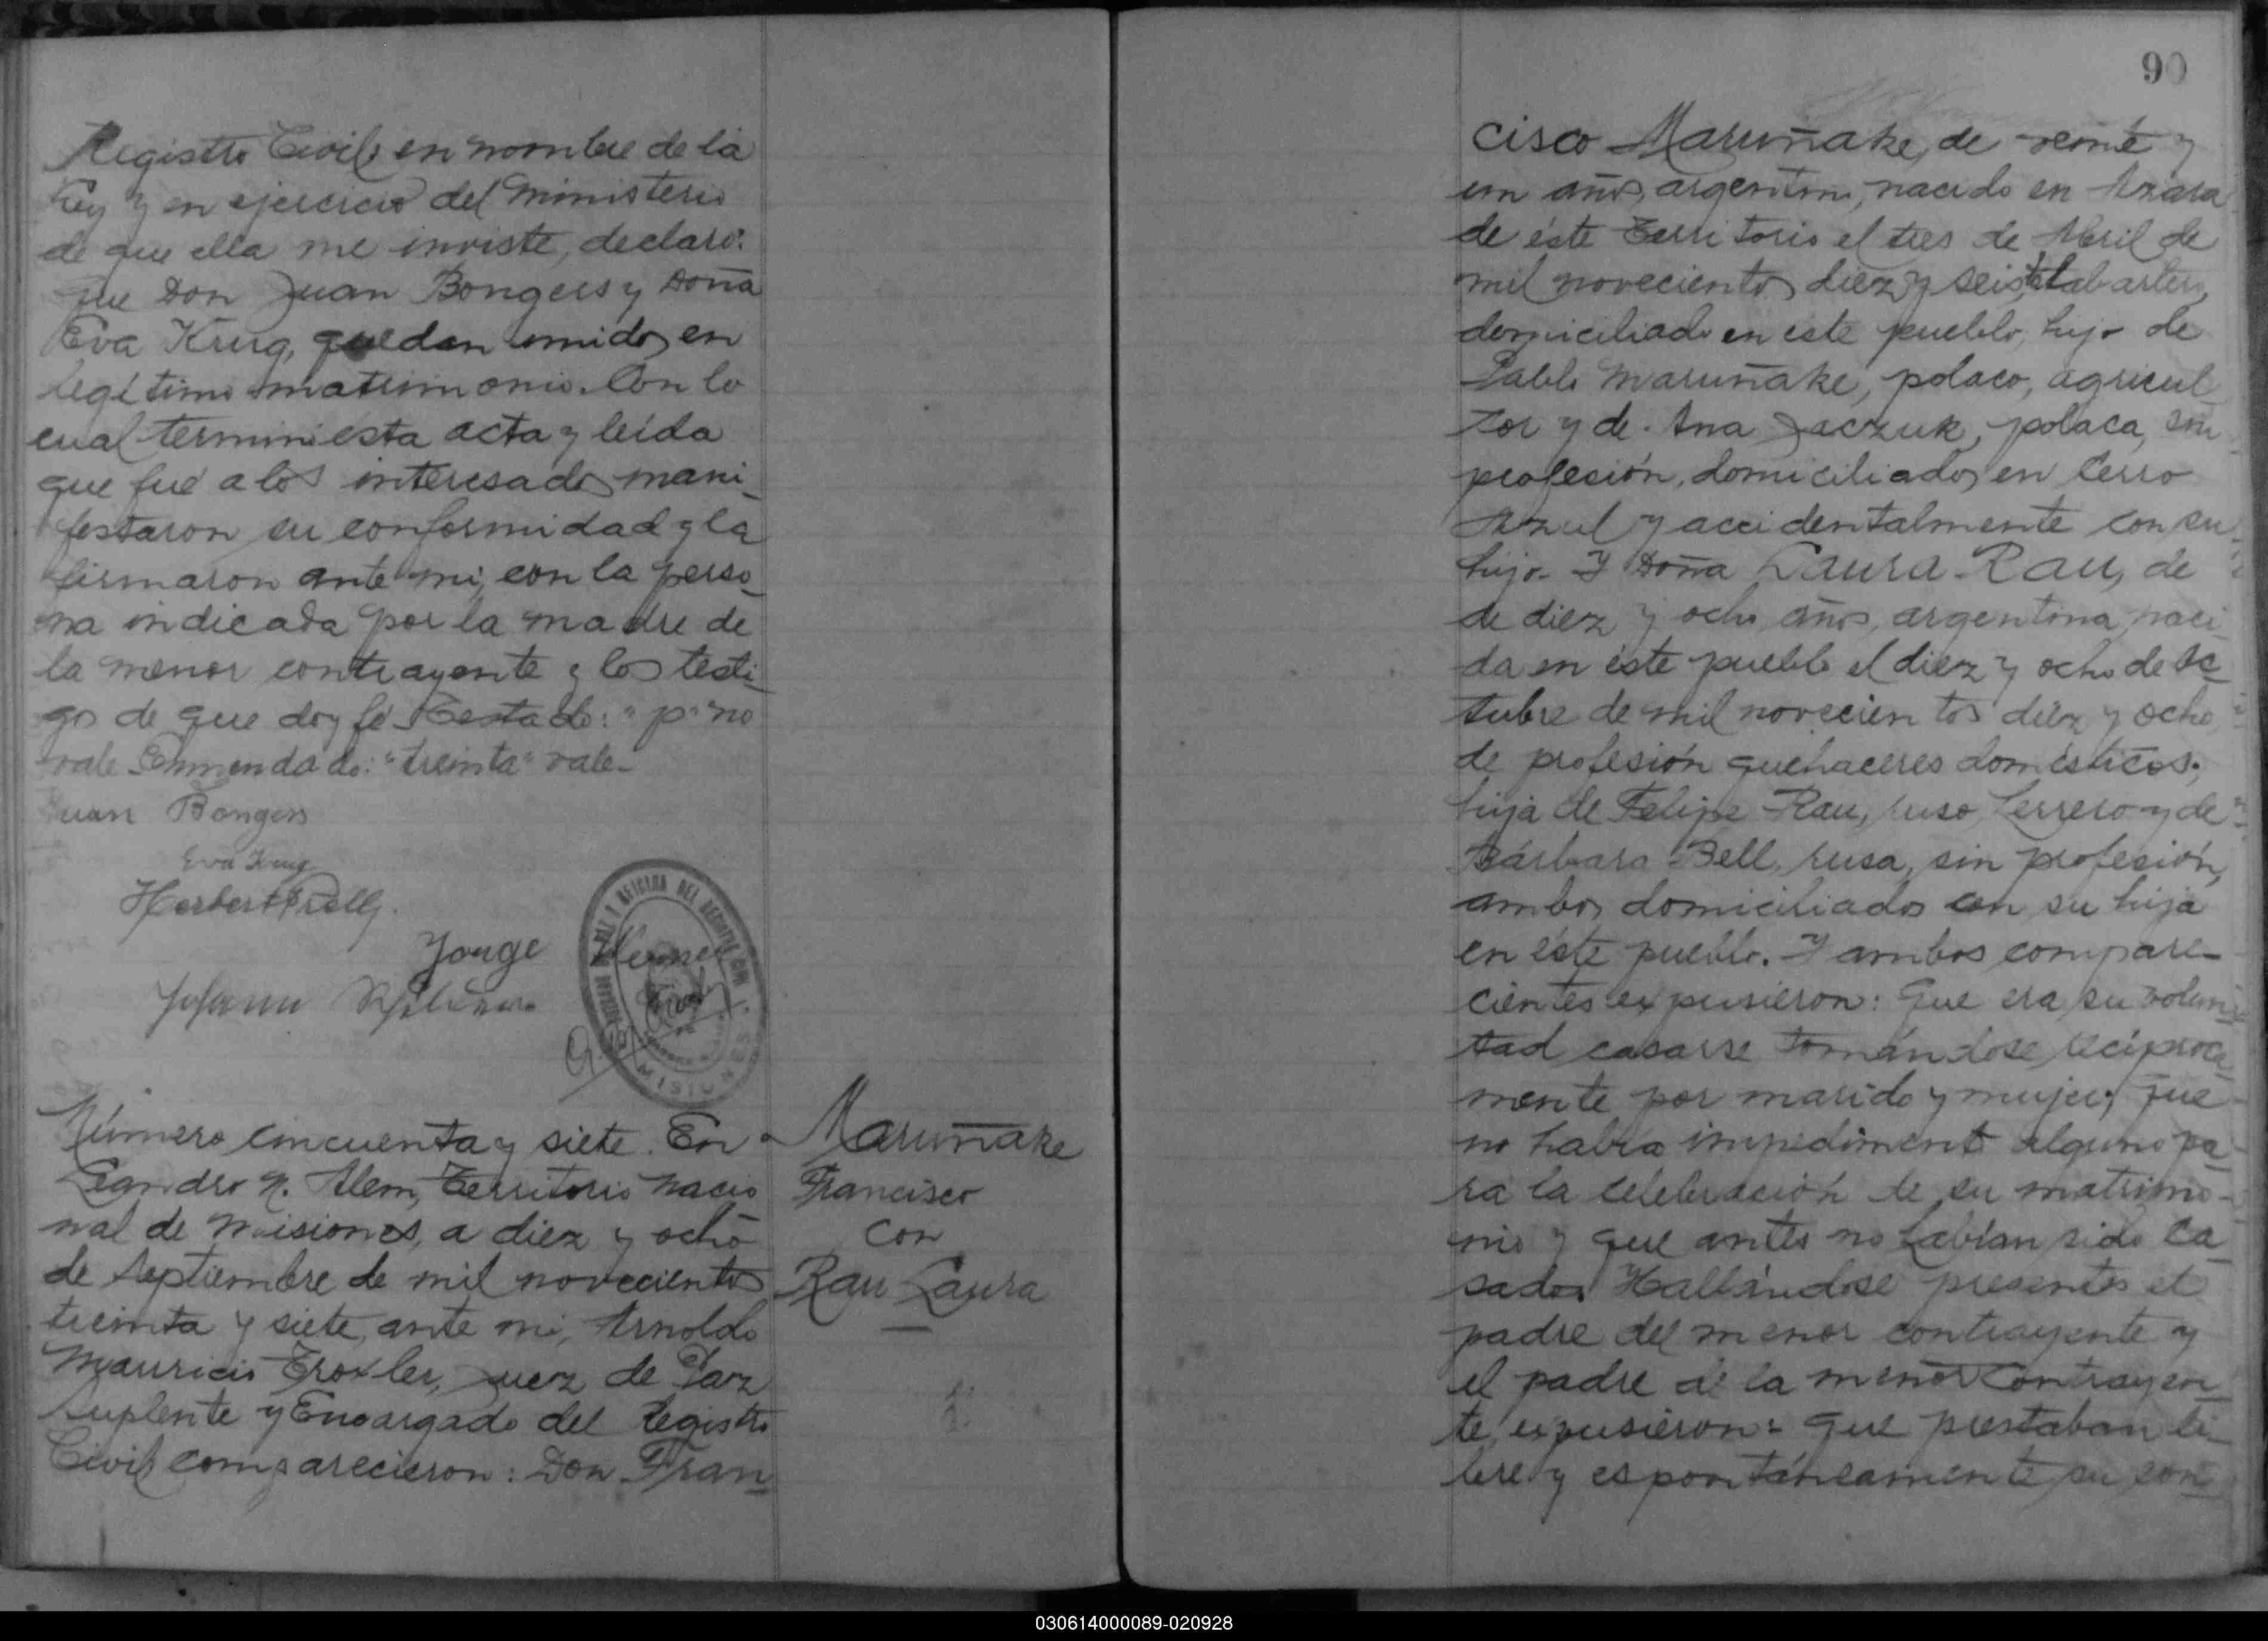 Registro Civil, en nombre de la
Ley y en ejercicio del Ministerio
de que ella me inviste, declaro:
que Don Juan Bongers y Doña
Eva Krug, quedan unidos en
legítimo matrimonio. Con lo
cual terminó ésta acta y leída
que fué a los interesados mani-
festaron su conformidad y la
firmaron ante mi, con la perso-
na indicada por la madre de
la menor contrayente y los testi-
gos de que doy fé. Testado: "p" no
vale Enmendado: "treinta" vale-
Juan Bongers
Eva Krug
Herbert
Jorge
Johann
MISIONES
Número cincuenta y siete. En
Leandro N. Alem, Territorio nacio
nal de Misiones, a diez y ocho
de Septiembre de mil novecientos
treinta y siete, ante mi, Arnoldo
Mauricio Troxler, Juez de Paz
Suplente y Encargado del Registro
Civil comparecieron: Don Fran-
Maruñake
Francisco
con
Rau Laura
90
cisco Maruñake, de veinte y
un años, argentino, nacido en Azara
de éste Territorio el tres de Abril de
mil novecientos diez y seis, talabartero,
domiciliado en este pueblo, hijo de
Pablo Maruñake, polaco, agricul-
tor y de Ana Jaczuk, polaca, sin
profesión, domiciliados en Cerro
Azul y accidentalmente con su
hijo. Y Doña Laura Rau, de
de diez y ocho años, argentina, naci
da en éste pueblo el diez y ocho de Oc-
tubre de mil novecientos diez y ocho
de profesión quehaceres domésticos;
hija de Felipe Rau, ruso, herrero y de
Bárbara Bell, rusa, sin profesión,
ambos domiciliados con su hija
en éste pueblo. Y ambos compare-
cientes expusieron: Que era su volun-
tad casarse tomándose recíproca-
mente por marido y mujer; que
no había impedimento alguno pa-
ra la celebración de su matrimo-
nio y que antes no habían sido ca-
sados. Hallándose presentes el
padre del menor contrayente y
el padre de la menor contrayen-
te, expusieron: que prestaban li-
bre y espontáneamente su con-
030614000089-020928